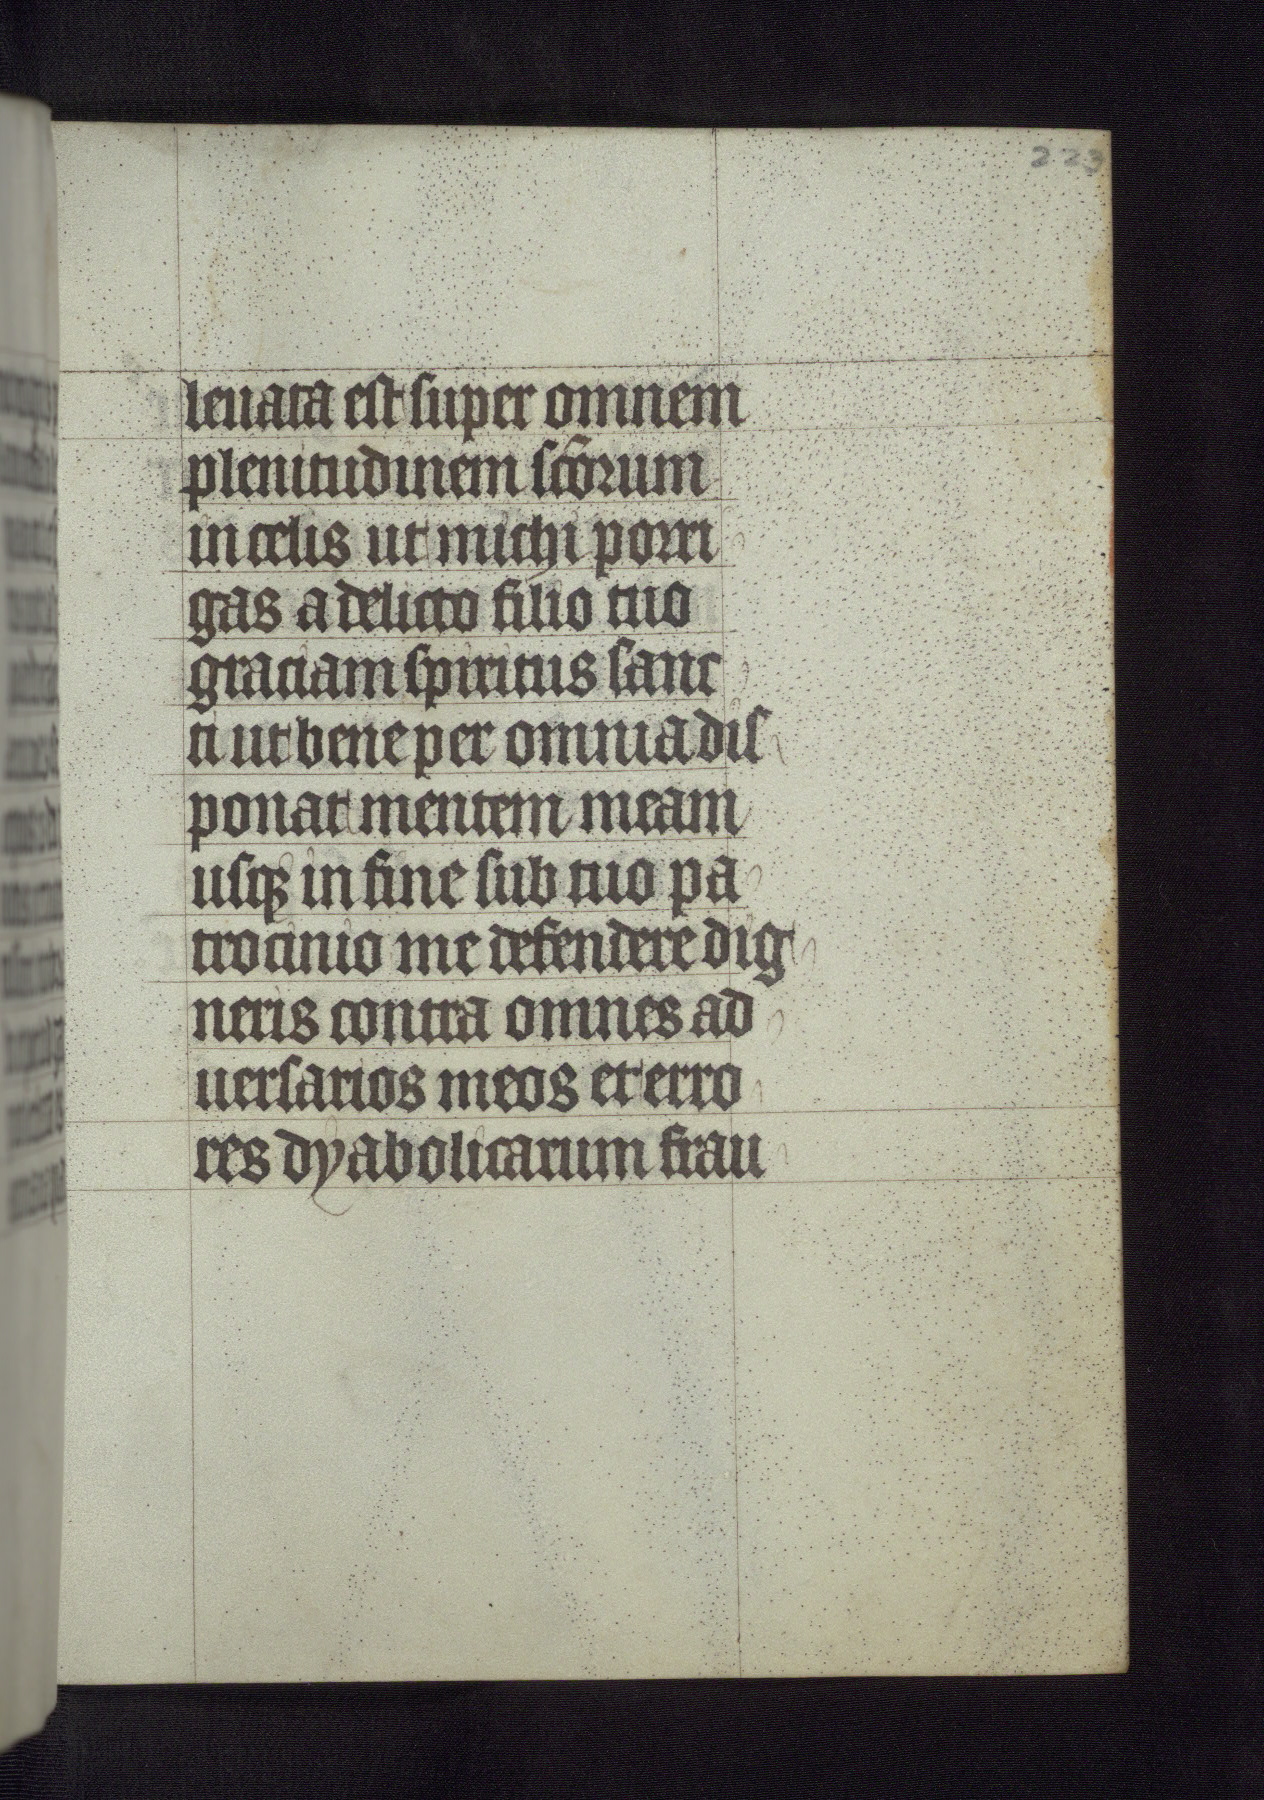 223
leuata est super omnem
plenitudinem sc̃orum
in celis ut michi porri
gas a delicto filio tuo
graciam spiritus sanc
ti ut bene per omnia dis
ponat mentem meam
usqꝫ in fine sub tuo pa
trocinio me defendere dig
neris contra omnes ad
uersarios meos et erro
res dyabolicarum frau